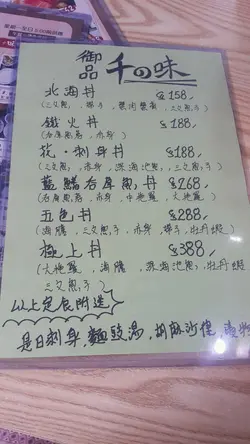 御品 千の味
北海丼 $158
(三文魚，帶子，蟹肉蟹膏，三文魚子)
鐵火丼 $188
(吞拿魚蓉，赤身)
花·刺身丼 $188
(三文魚，赤身，深海池魚，三文魚子)
藍鰭吞拿魚丼 $268
(吞拿魚蓉，赤身，中拖羅，大拖羅)
五色丼 $288
(海膽，三文魚子，赤身，帶子，牡丹蝦)
極上丼 $388
(大拖羅，海膽，深海池魚，牡丹蝦
三文魚子)
以上定食附送
是日刺身，麵豉湯，胡麻沙律